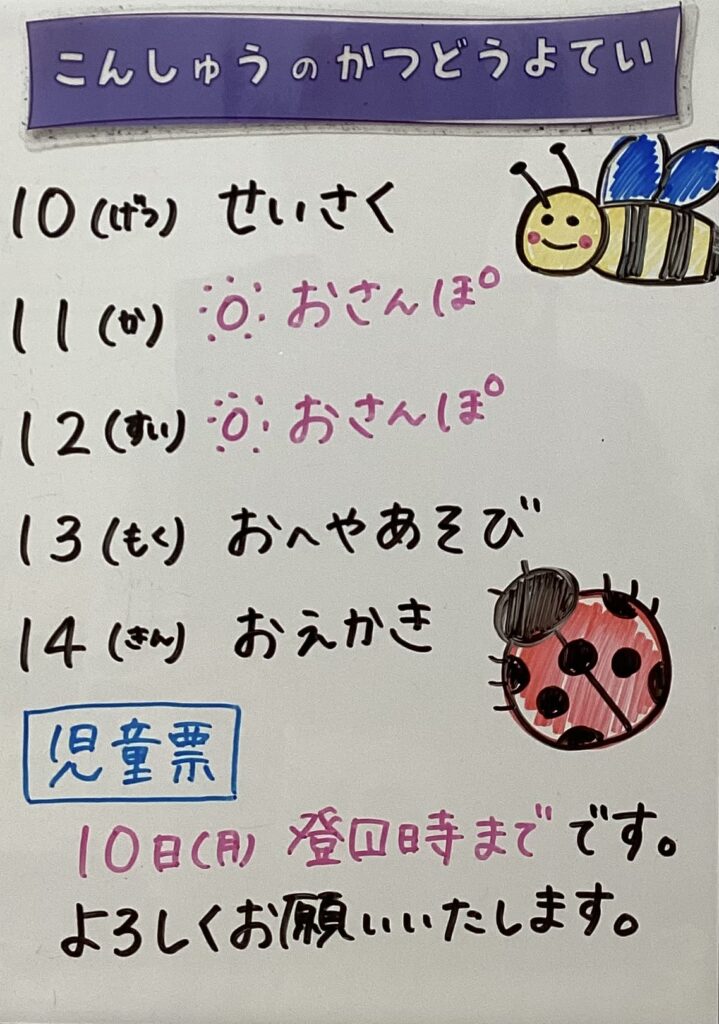 こんしゅうのかつどうよてい
10(げつ) せいさく
11(か) おさんぽ
12(すい) おさんぽ
13(もく) おへやあそび
14(きん) おえかき
児童票
10日(月) 登口時までです。
よろしくお願いいたします。